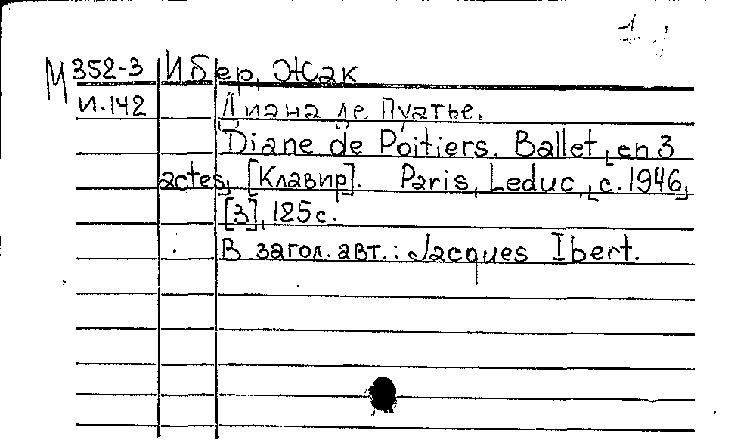 М 352-3 Ибер, Жак
И-142 Диана де Пуатье.
Diane de Poitiers. Ballet en 3
actes, [Клавир]. Paris, Leduc, c. 1946,
[3], 125 с.
В загол. авт.: Jacques Ibert.